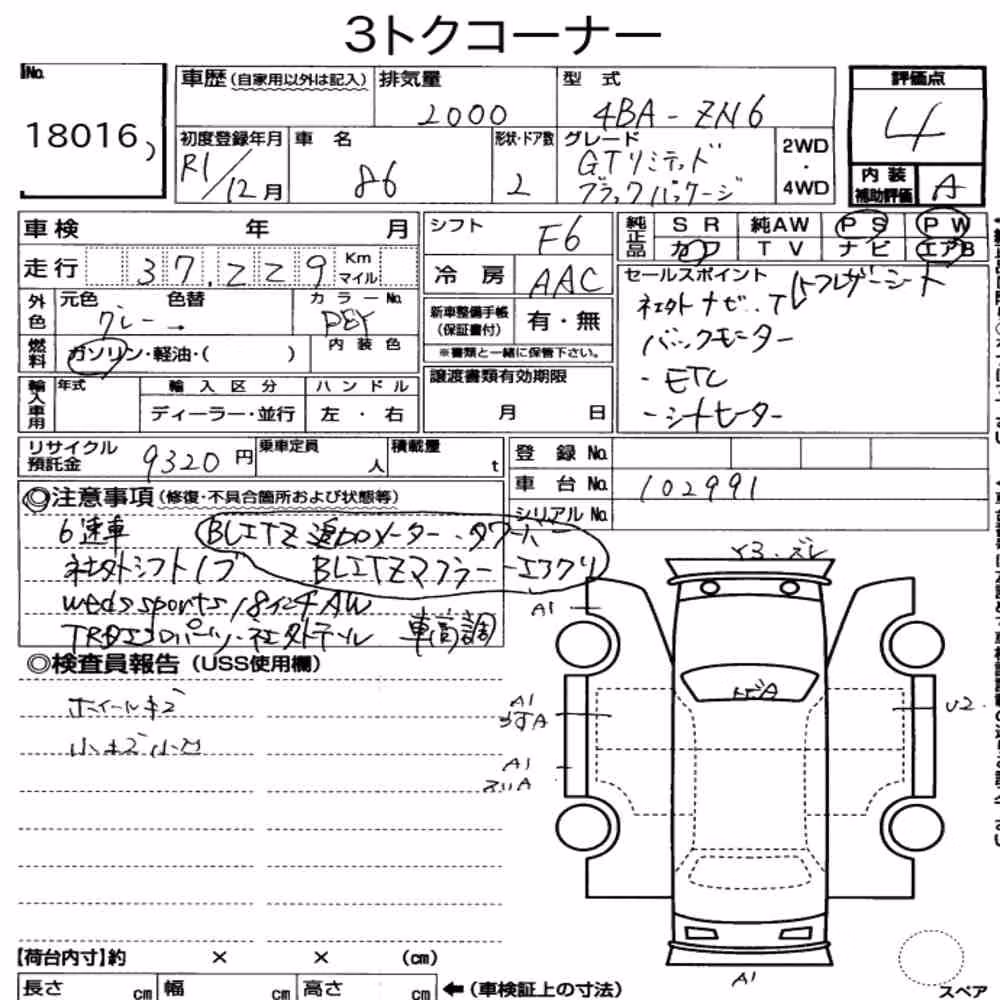 3トクコーナー
No.
18016
車歴(自家用以外は記入)
排気量
2000
型 式
4BA-ZN6
評価点
4
内装
補助評価
A
初度登録年月
R1/12月
車 名
86
形状・ドア数
2
グレード
GTリミテッド
ブラックパッケージ
2WD
・
4WD
車検 年 月
走行 37,229 Km
マイル
外色
元色 色替
グレー→
カラーNo.
燃料
ガソリン・軽油・( )
内装色
輸入車用
年式
輸入区分
ディーラー・並行
ハンドル
左・右
シフト
F6
冷房
AAC
新車整備手帳
(保証書付)
有・無
※書類と一緒に保管下さい。
譲渡書類有効期限
月 日
純正品
SR 純AW PS PW
カワ TV ナビ エアB
セールスポイント
トフレザーシート
社外ナビ・TV
バックモニター
・ETC
・シートヒーター
リサイクル
預託金
9320円
乗車定員
人
積載量
t
登録No.
車台No. 102991
シリアルNo.
◎注意事項(修復・不具合箇所および状態等)
6速車 BLITZ 追加メーター・タワーバー
社外シフトノブ BLITZマフラー・エアクリ
weds sports 18インチAW
TRDエアロパーツ・社外テール 車高調
◎検査員報告(USS使用欄)
ホイールキズ
小キズ小凹
Y3・ズレ
A1
トビA
A1
U2
A1
A1
【荷台内寸】約 × × (cm)
長さ cm 幅 cm 高さ cm ←(車検証上の寸法)
スペア